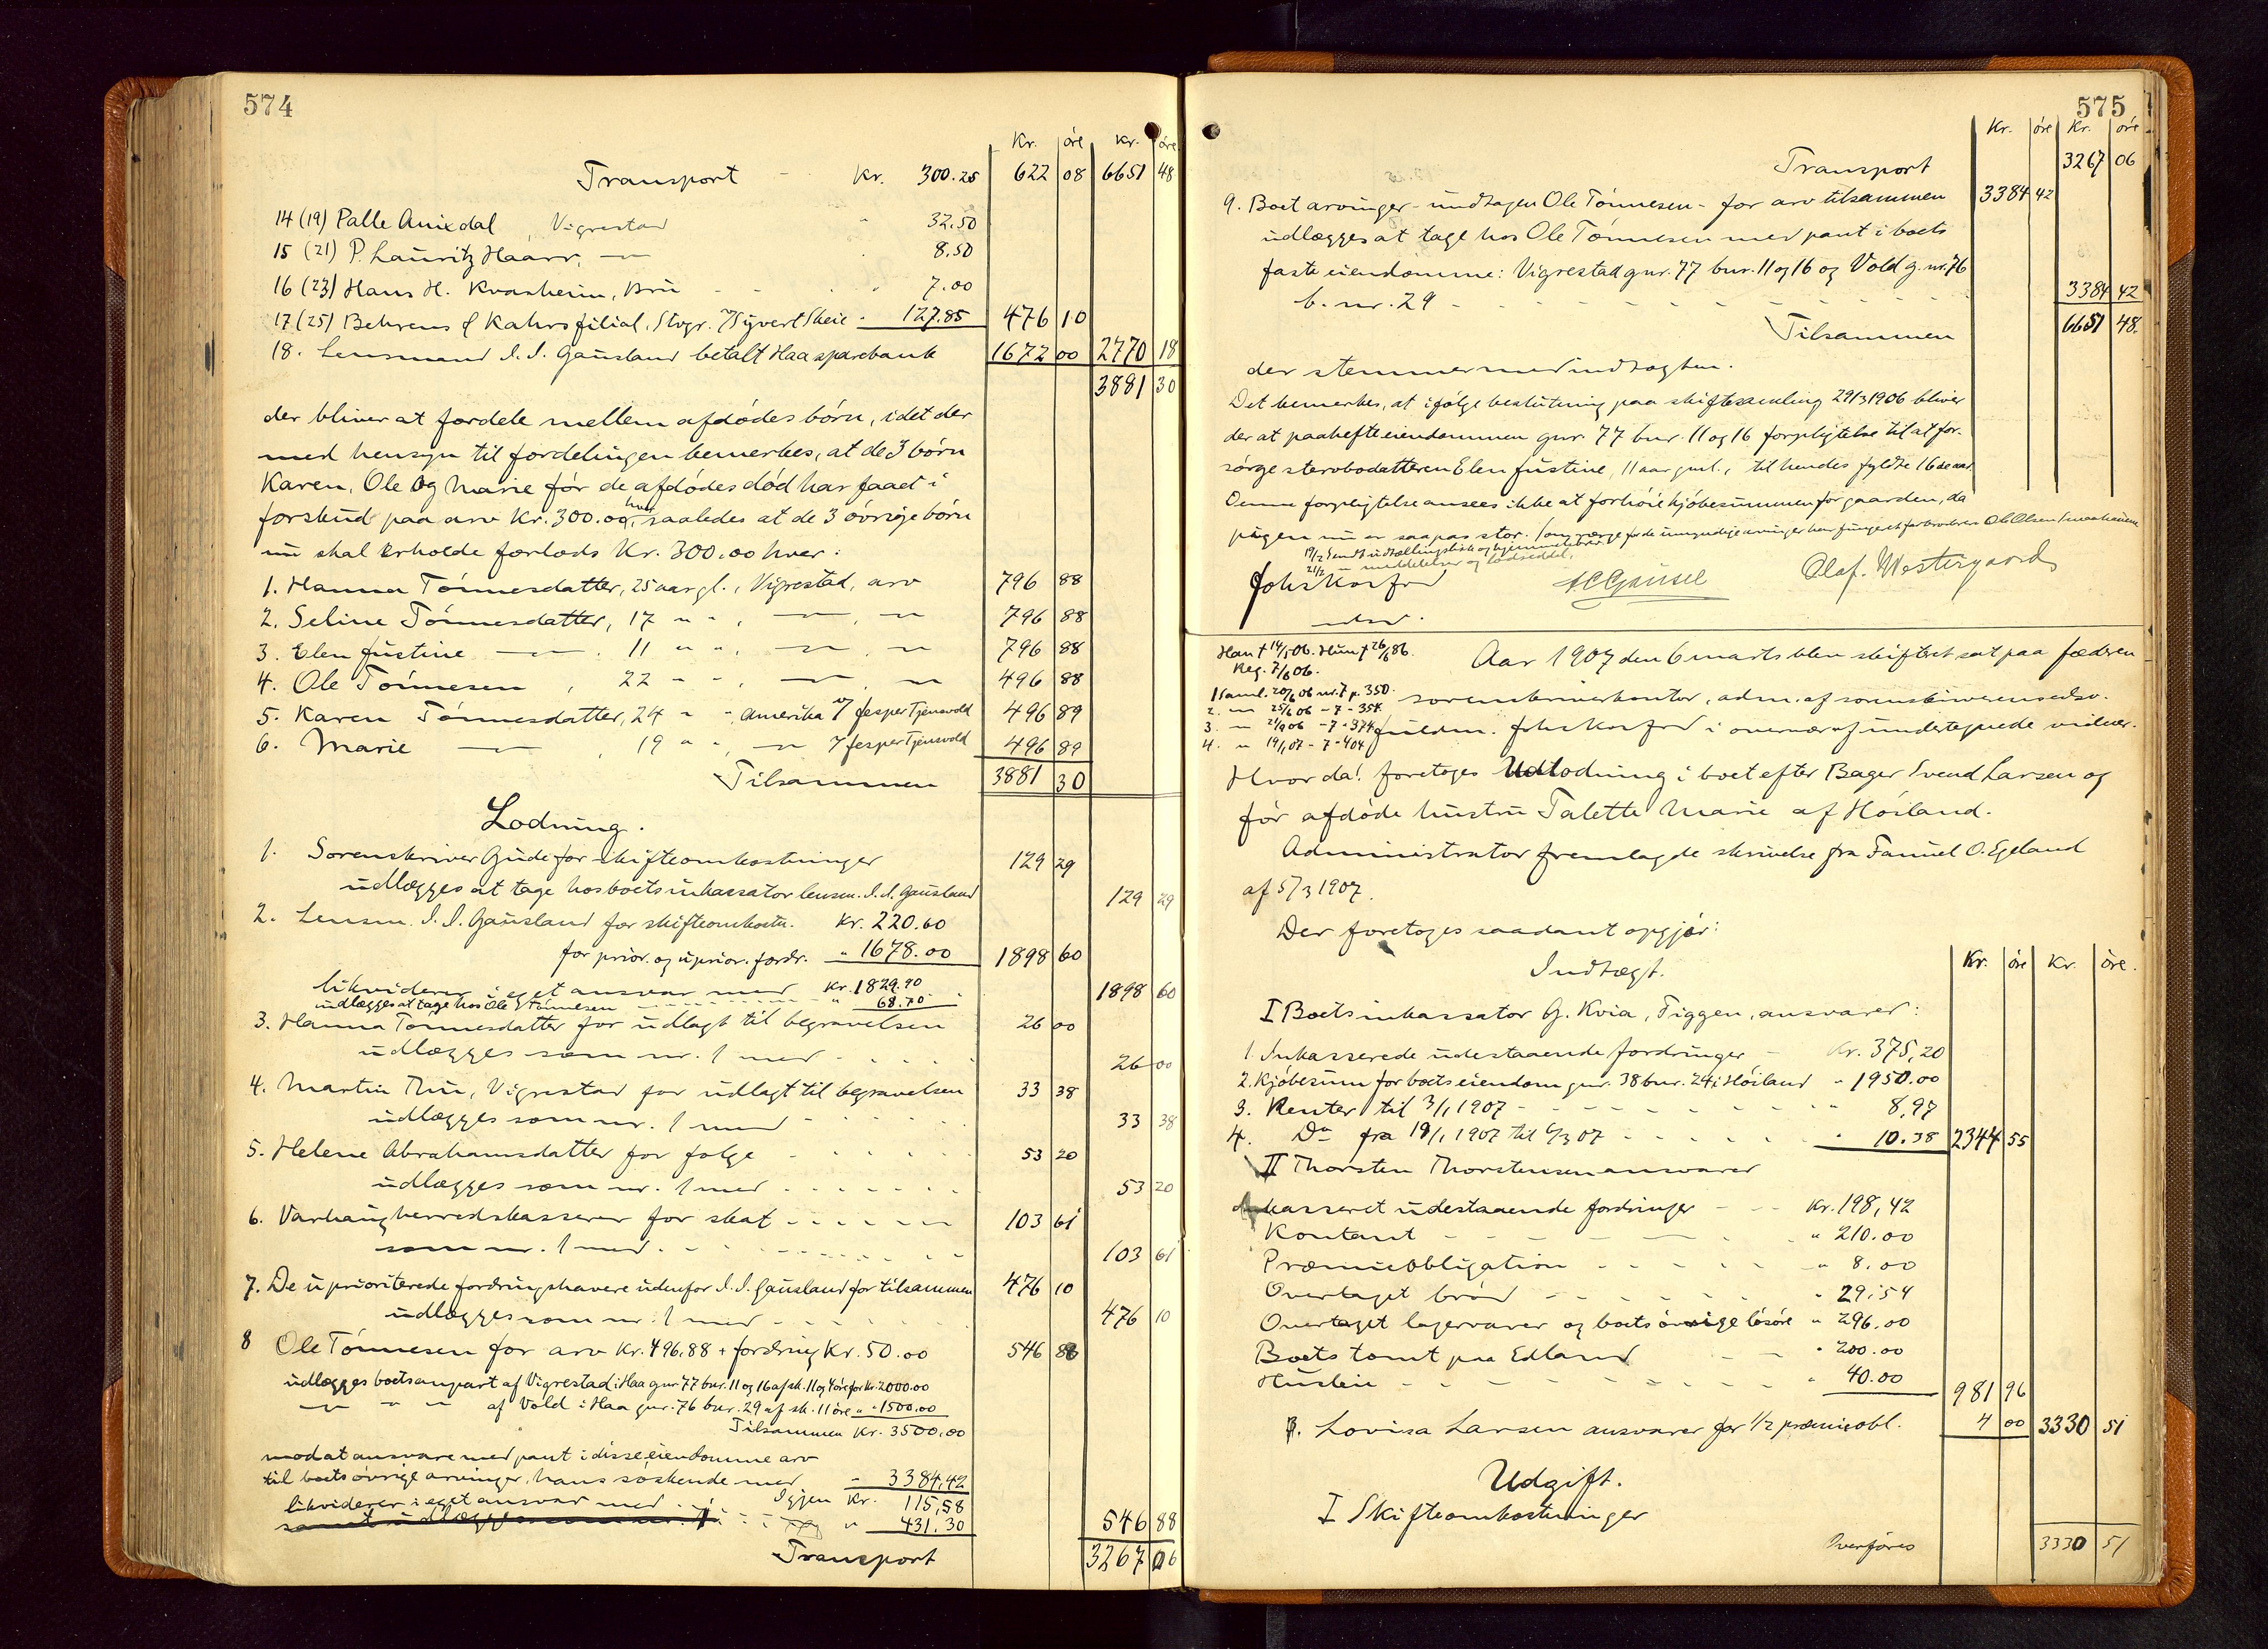 574
Kr. øre Kr. øre
Transport - Kr. 300.25 622 08 6651 48
14 (19) Palle Anixdal, Vigrestad " 32.50
15 (21) P. Lauritz Haarr, — 8.50
16 (23) Hans H. Kvasheim, Bru - - " 7.00
17 (25) Behrens & Kahrs filial, Stvgr. v/Syvert Skeie - 127.85 476 10
18. Lensmand I. I. Gausland betalt Haa sparebank 1672 00 2770 18
3881 30
der bliver at fordele mellem afdødes børn, idet der
med hensyn til fordelingen bemerkes, at de 3 børn
Karen, Ole og Marie før de afdødes død har faaet i
forskud paa arv Kr. 300.00 hver, saaledes at de 3 øvrige børn
nu skal erholde forlods Kr. 300.00 hver:
1. Hanna Tønnesdatter, 25 aar gl., Vigrestad, arv 796 88
2. Seline Tønnesdatter, 17 " ", — , — 796 88
3. Elen Justine — , 11 " ", — , — 796 88
4. Ole Tønnesen , 22 - - , — , — 496 88
5. Karen Tønnesdatter, 24 " ", Amerika v/ Jesper Tjensvold 496 89
6. Marie — , 19 " ", — v/ Jesper Tjensvold 496 89
Tilsammen 3881 30
Lodning.
1. Sorenskriver Gude for skifteomkostninger 129 29
udlægges at tage hos boets inkassator lensm. I. I. Gausland 129 29
2. Lensm. I. I. Gausland for skifteomkostn. Kr. 220.60
for prior. og uprior. fordr. " 1678.00 1898 60
likviderer i eget ansvar med Kr. 1829.90 1898 60
udlægges at tage hos Ole Tønnesen " 68.70
3. Hanna Tønnesdatter for udlagt til begravelsen 26 00
udlægges som nr. 1 med - - - 26 00
4. Martin Thu, Vigrestad for udlagt til begravelsen 33 38
udlægges som nr. 1 med - - - 33 38
5. Helene Abrahamsdatter for følge - - - 53 20
udlægges som nr. 1 med - - - 53 20
6. Varhaug herredskasserer for skat - - - 103 61
som nr. 1 med - - - 103 61
7. De uprioriterede fordringshavere udenfor I. I. Gausland for tilsammen 476 10
udlægges som nr. 1 med - - - 476 10
8 Ole Tønnesen for arv Kr. 496.88 + fordring Kr. 50.00 546 88
udlægges boets anpart af Vigrestad i Haa gnr. 77 bnr. 11 og 16 af sk. 11 og 4 øre for Kr. 2000.00
— " — af Vold i Haa gnr. 76 bnr. 29 af sk. 11 øre " " 1500.00
Tilsammen Kr. 3500.00
mod at ansvare med pant i disse eiendomme arv
til boets øvrige arvinger, hans søskende med - 3384,42
Igjen Kr. 115,58
likviderer i eget ansvar med - - " 431.30 546 88
Transport 3267 06
575
Kr. øre Kr. øre
Transport 3267 06
9. Boet arvinger - undtagen Ole Tønnesen - for arv tilsammen 3384 42
udlægges at tage hos Ole Tønnesen med pant i boets
faste eiendomme: Vigrestad gnr. 77 bnr. 11 og 16 og Vold g.nr. 76
b.nr. 29 - - - 3384 42
Tilsammen 6651 48.
der stemmer med indtægten.
Det bemerkes, at ifølge beslutning paa skiftesamling 29/3 1906 bliver
der at paahefte eiendommen gnr. 77 bnr. 11 og 16 forpligtelse til at for-
sørge stervbodatteren Elen Justine, 11 aar gml., til hendes fyldte 16de aar.
Denne forpligtelse ansees ikke at forhøie kjøbesummen for gaarden, da
pigen nu er saapas stor. Som verge for de umyndige arvinger har fungeret farbroderen Ole Olsen
19/2 Sendt udtællingsliste og hjemmelsbrev.
21/2 " meddelelser og lodseddel.
Joh. Korfod
A C Gausel
Olaf. Westergaard
Han † 14/5 06. Hun † 26/6 86.
Reg. 7/6 06.
1 Saml. 20/6 06 nr. 7 p. 350.
2. — 25/6 06 - 7 - 354
3. — 21/9 06 - 7 - 374
4. — 19/1 07 - 7 - 404
Aar 1907 den 6 marts blev skifteret sat paa Jæderen
sorenskriverkontor, adm. af sorenskriverens edsv.
fuldm. Joh. Korfod i overvær af undertegnede vidner.
Hvorda! foretoges Udlodning i boet efter Bager Svend Larsen og
før afdøde hustru Talette Marie af Høiland.
Administrator fremlagde skrivelse fra Samuel O. Egeland
af 5/3 1907.
Der foretoges saadant opgjør:
Indtægt.
Kr. øre Kr. øre.
I Boets inkassator G. Kvia, Figgen, ansvarer:
1. Inkasserede udestaaende fordringer - Kr. 375,20
2. Kjøbesum for boets eiendom gnr. 38 bnr. 24 i Høiland " 1950.00
3. Renter til 3/1 1907 - - - " 8,97
4. Do fra 19/1 1907 til 6/3 07 - - - " 10.38 2344 55
II Thorsten Thorstensen ansvarer
Inkasseret udestaaende fordringer - - Kr. 198,42
Kontant - - - " 210.00
Præmieobligation - - - " 8.00
Overtaget brød - - - " 29.54
Overtaget lagervarer og boets øvrige løsøre " 296.00
Boets tomt paa Edland - - " 200.00
Husleie - - - " 40.00 981 96
Lovisa Larsen ansvarer for 1/2 præmieobl. 4 00 3330 51
Udgift.
I Skifteomkostninger
Overføres 3330 51